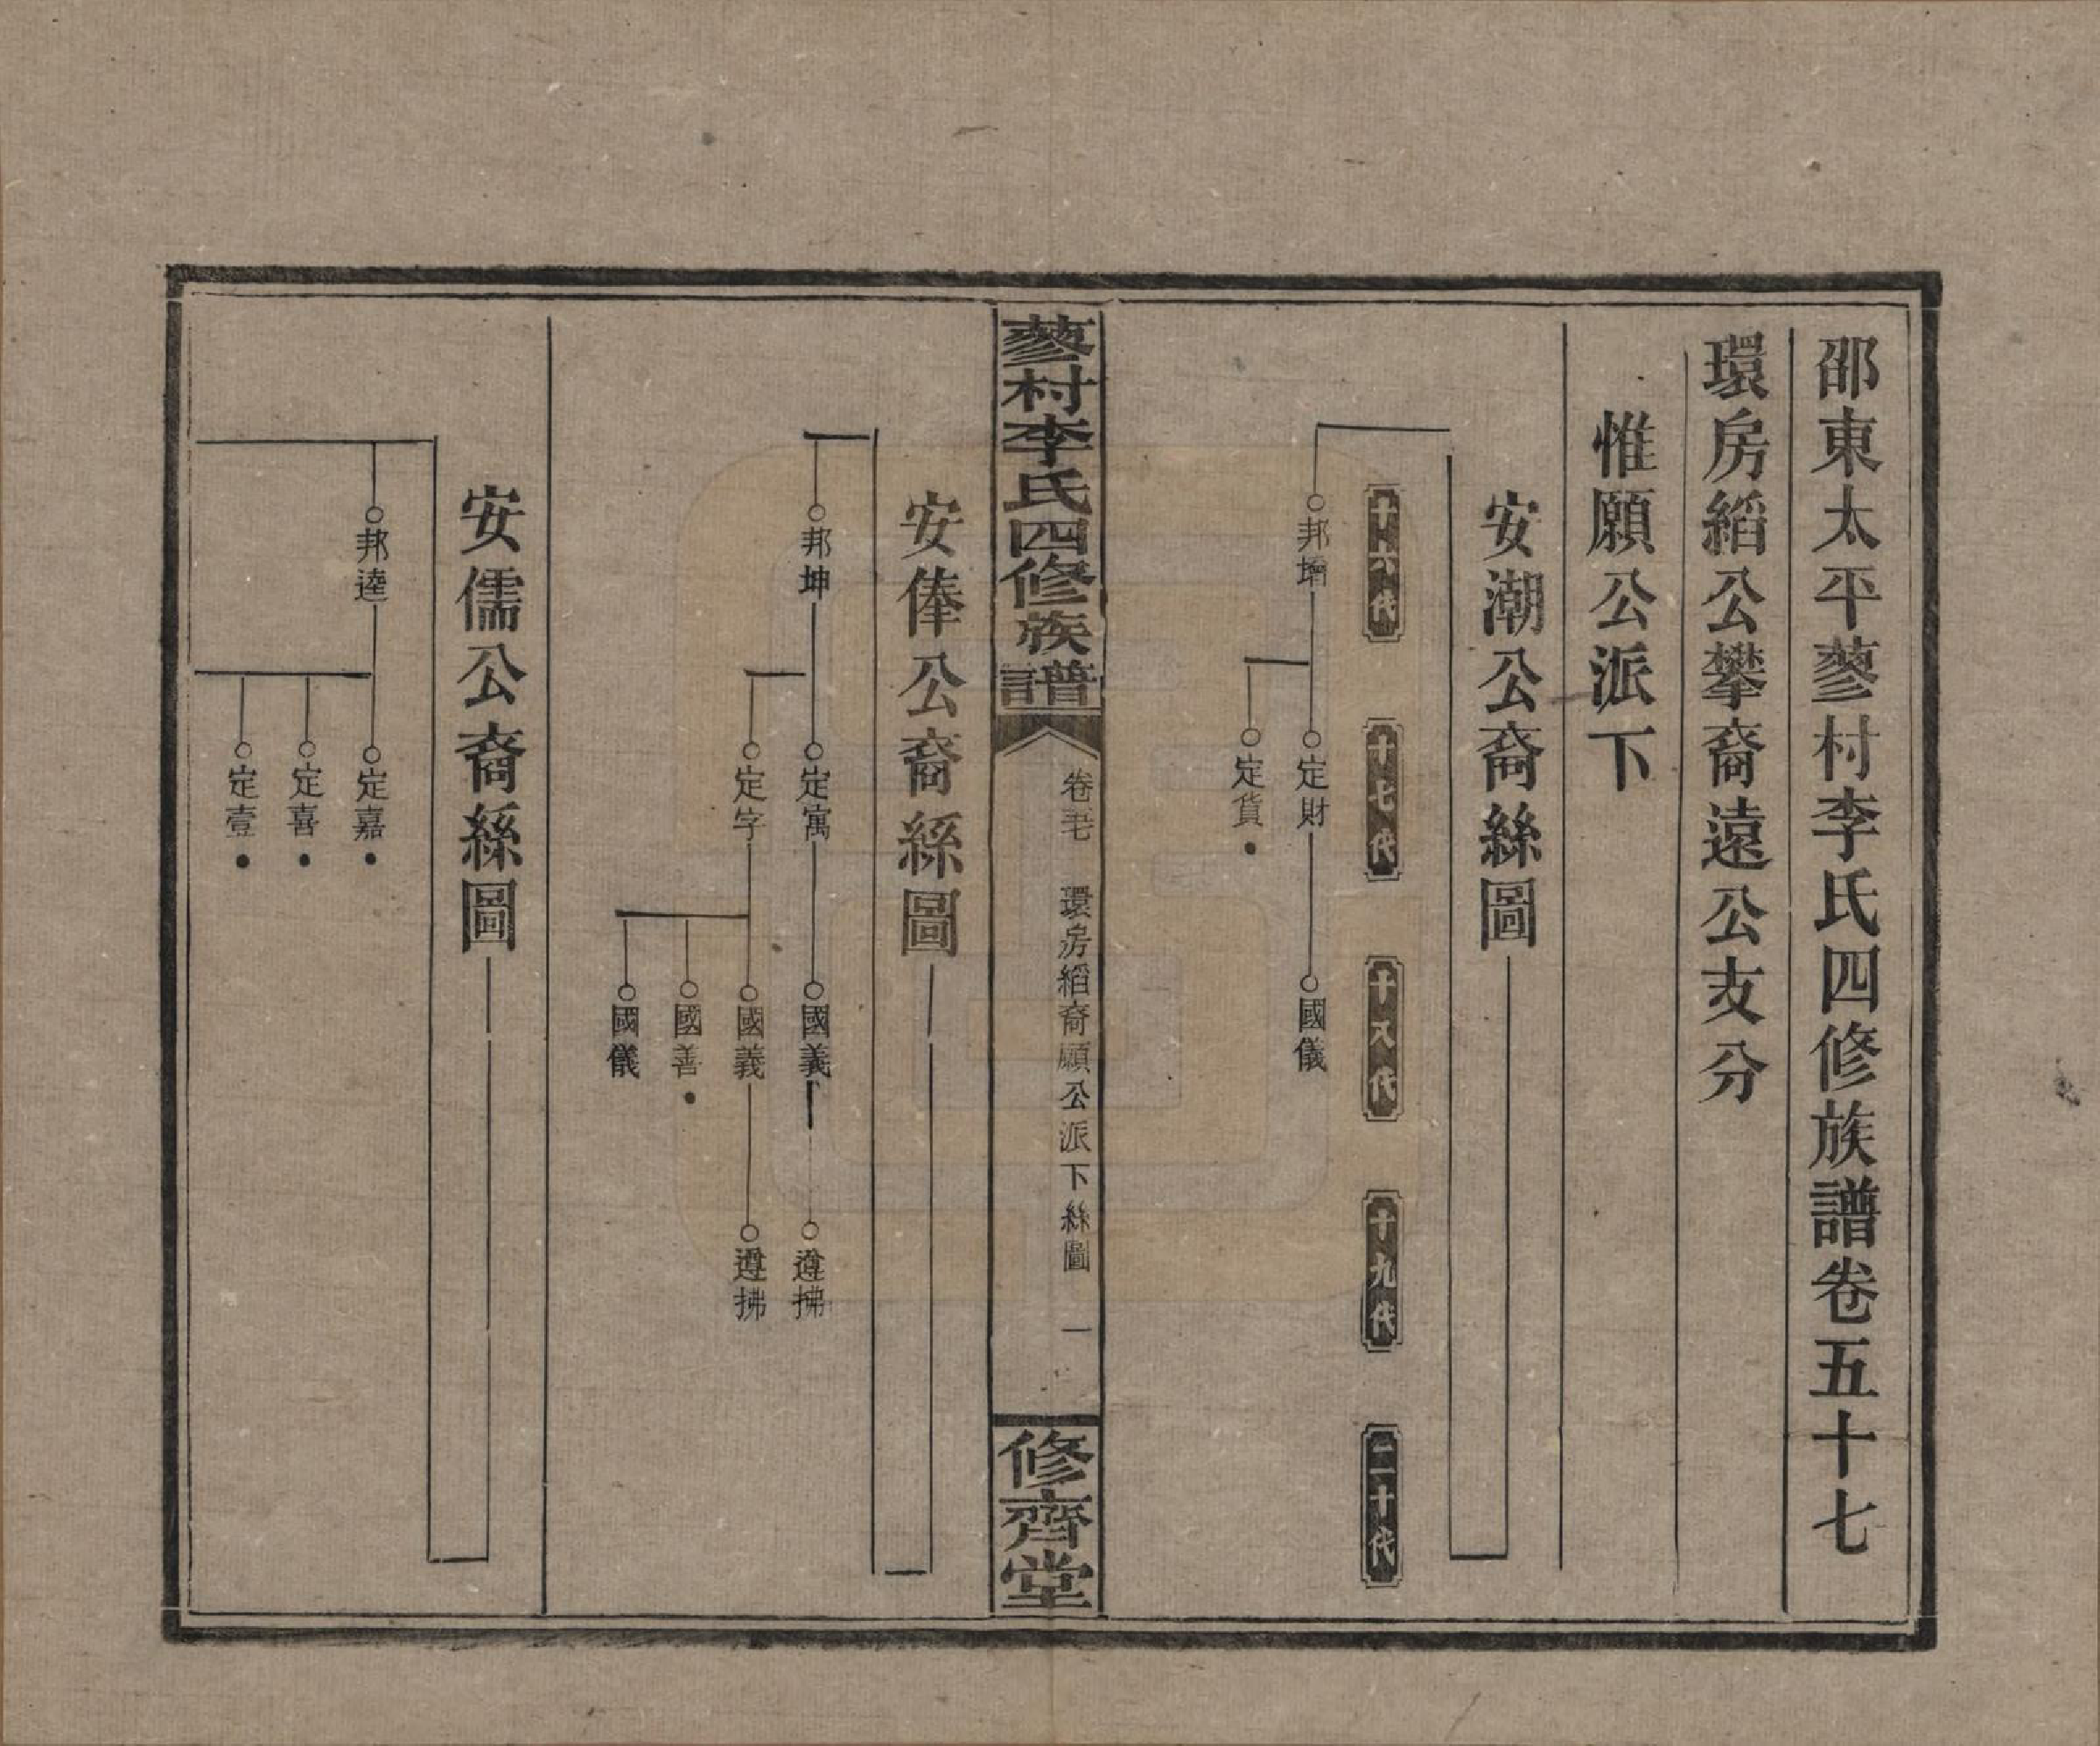 邵東太平蓼村李氏四修族譜卷五十七
環房縚公攀裔遠公支分
惟願公派下
安潮公裔絲圖
十六代
十七代
十八代
十九代
二十代
邦壻
定財
國儀
定貨
蓼村李氏四修族譜
卷五七
環房縚裔願公派下絲圖
一
修齊堂
安俸公裔絲圖
邦坤
定寓
國義
遵拂
定字
國義
遵拂
國善
國儀
安儒公裔絲圖
邦逵
定嘉
定喜
定壹